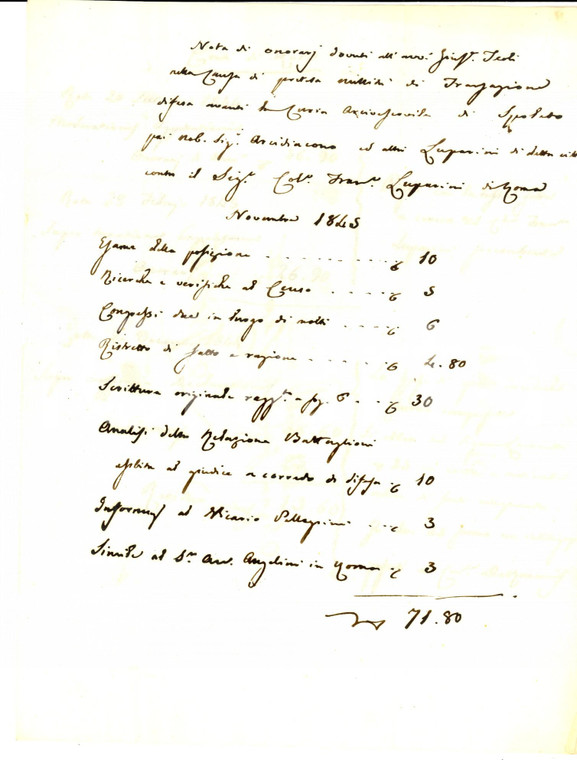 Nota di onorarj dovuti all'avv. Giusp. Feoli
nella Causa di pretesa nullità di Transazione
difesa avanti la Curia Arcivescovile di Spoleto
pei Nob. Sig. Arcidiacono ed altri Luparini di detta città
contro il Sig. Franc. Luparini di Roma
Novembre 1845
Esame della posizione 10
Ricerche e verifiche al Censo 5
Congressi due in luogo di molti 6
Ristretto di fatto e ragione 4.80
Scrittura originale 6 30
Analisi della Relazione Battaglioni
esibita al giudice a corredo di difesa 10
Informaz. al Vicario Pellegrini 3
Simile al Sr. Avv. Angelini in Roma 3
71.80